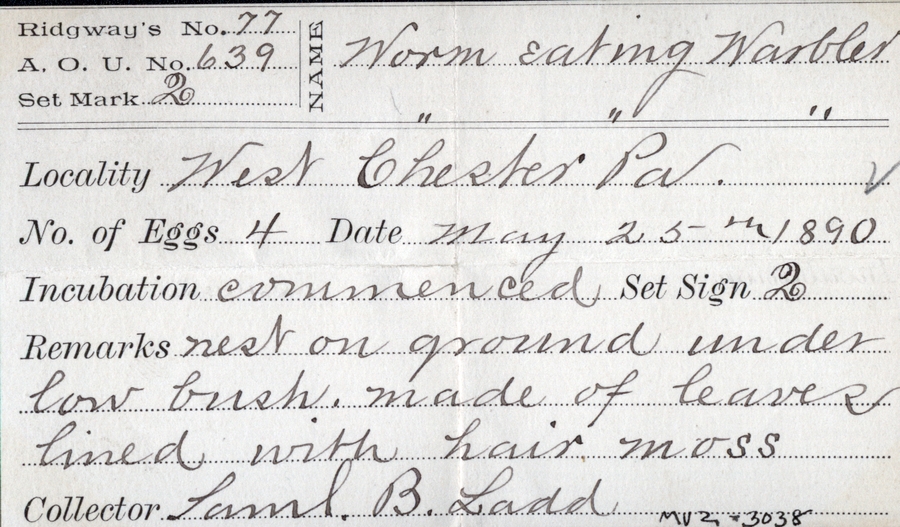 Ridgway's No. 77
A. O. U. No. 639
Set Mark 2
NAME
Worm eating Warbler
" " "
Locality West Chester Pa.
No. of Eggs 4 Date May 25th 1890
Incubation commenced Set Sign 2
Remarks nest on ground under
low bush. made of leaves
lined with hair moss
Collector Saml. B. Ladd
MVZ-3038